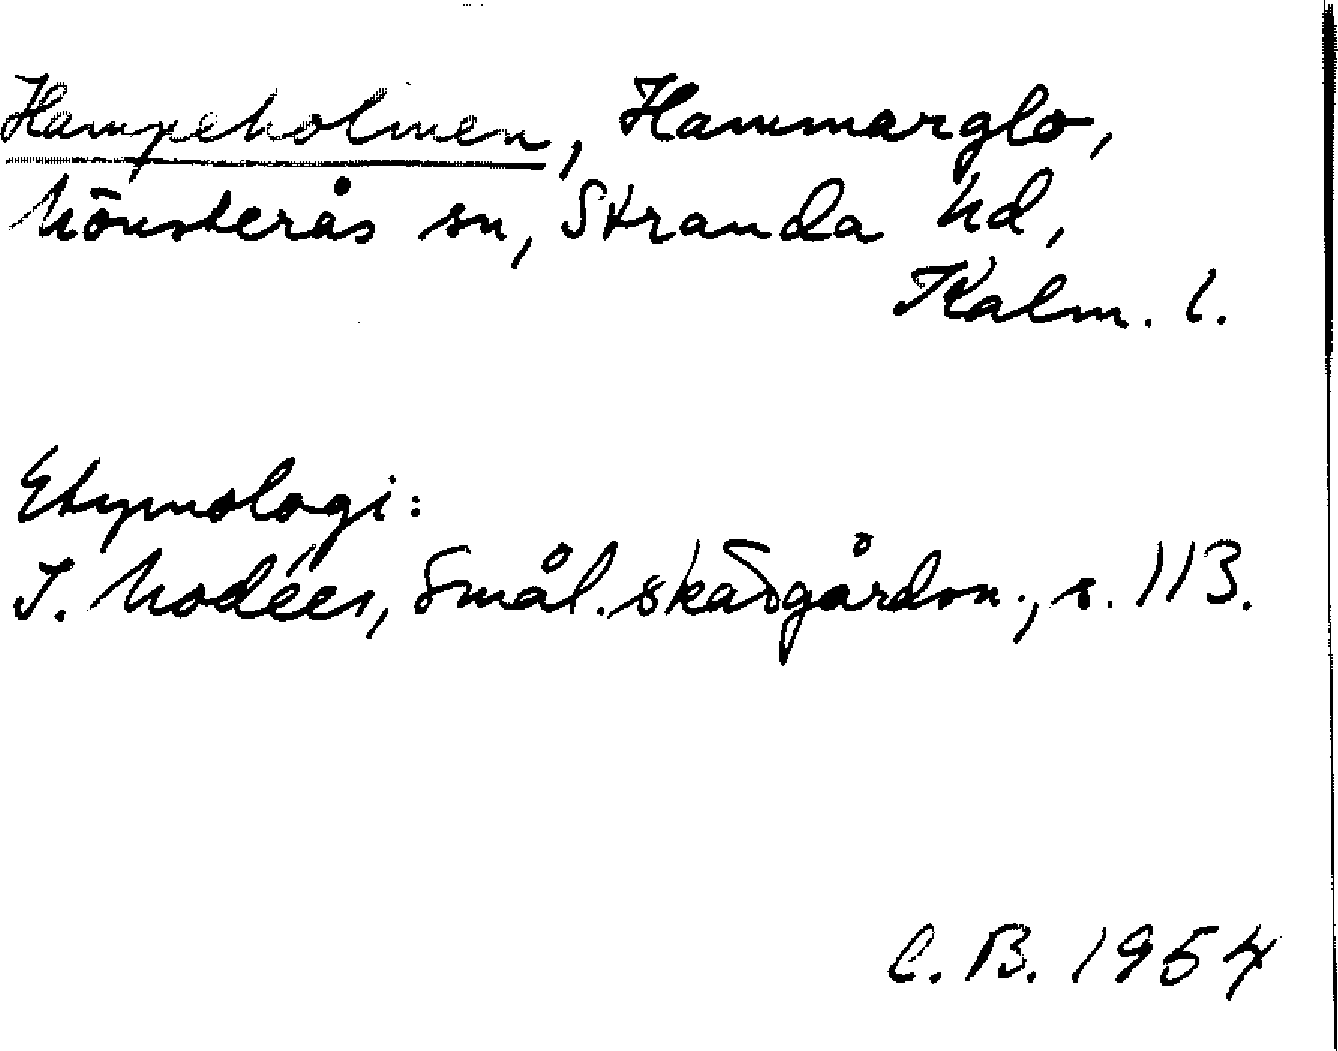 Hampeholmen, Hammarglo,
Mönsterås sn, Stranda hd,
Kalm. l.
Etymologi:
I. Modéer, Smål. skärgårdsn., s. 113.
C. B. 1954